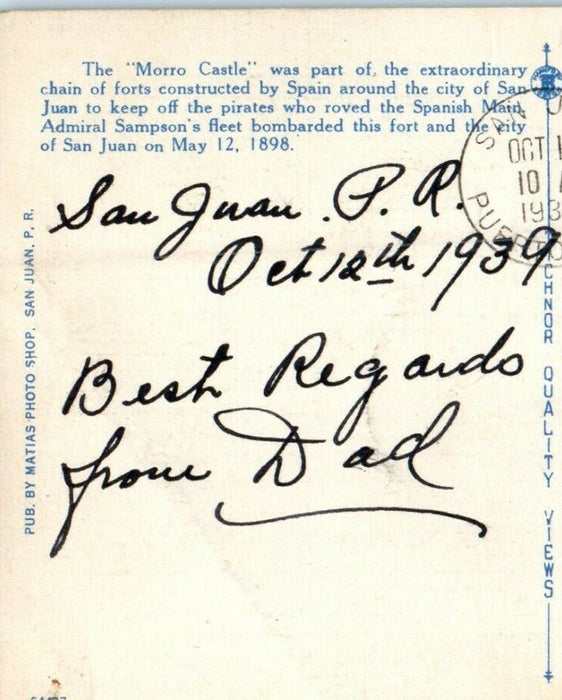 The "Morro Castle" was part of the extraordinary
chain of forts constructed by Spain around the city of San
Juan to keep off the pirates who roved the Spanish Main.
Admiral Sampson's fleet bombarded this fort and the city
of San Juan on May 12, 1898.
SAN J
OCT 1
10 A
193
PUERTO
San Juan. P. R.
Oct 12th 1939
Best Regards
from Dad
PUB. BY MATIAS PHOTO SHOP, SAN JUAN, P. R.
CHNOR QUALITY VIEWS